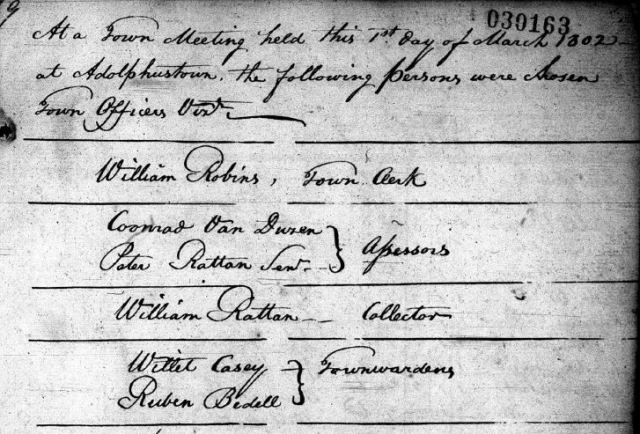 9
030163
At a Town Meeting held this 1st day of March 1802
at Adolphustown, the following persons were chosen
Town Officers Vizt
William Robins, Town Clerk
Coonrad Van Duzen
Peter Rattan Senr
} Assessors
William Rattan - Collector
Willet Casey
Ruben Bedell
} Townwardens